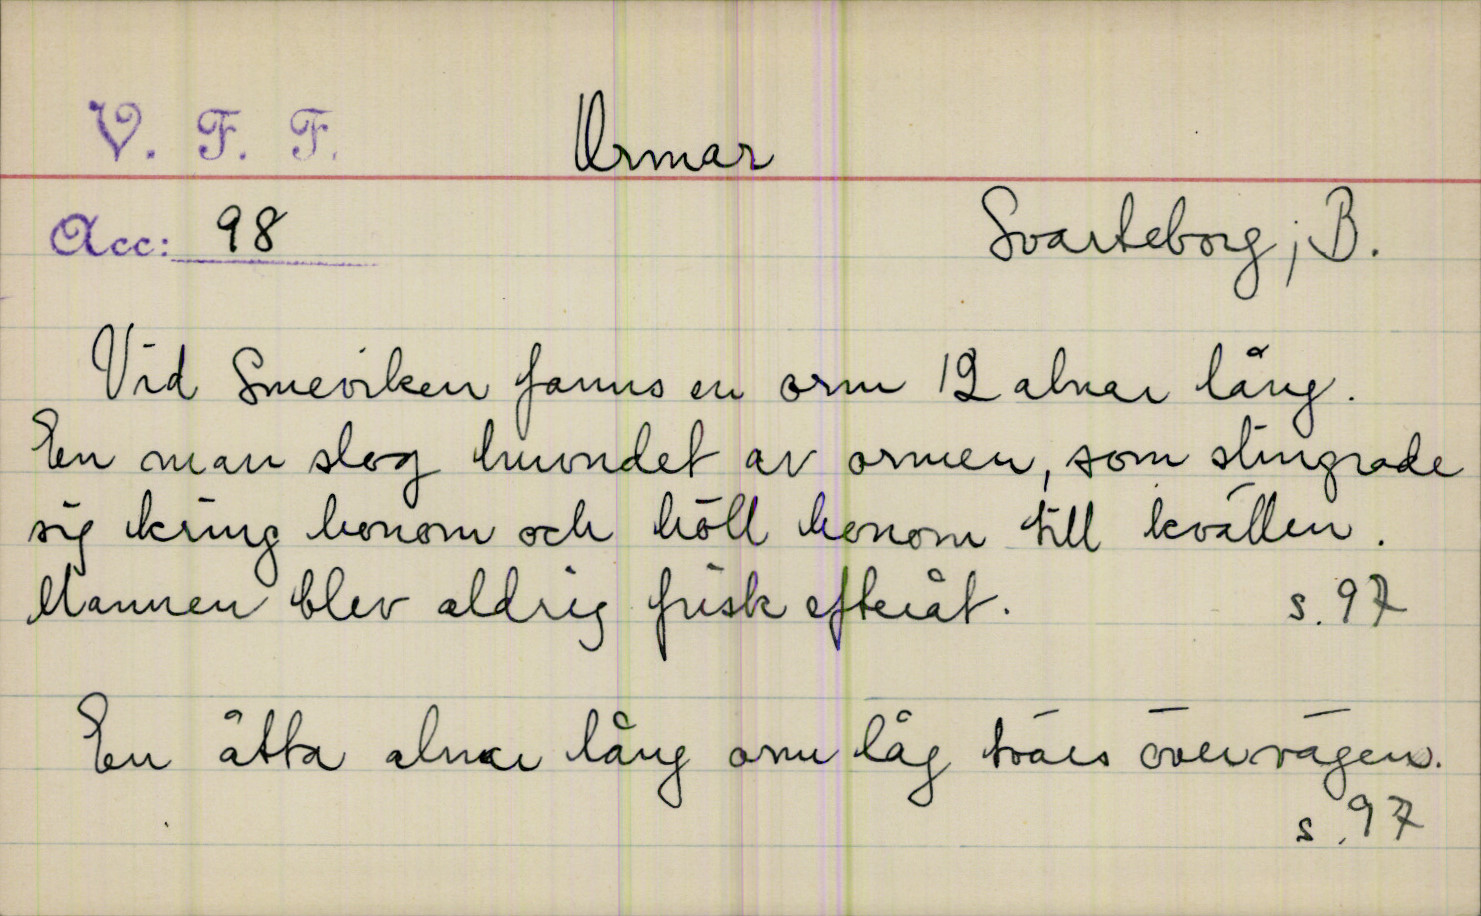 V. F. F.
Ormar
Acc: 98
Svarteborg; B.
Vid Smeviken fanns en orm 12 alnar lång.
En man slog huvudet av ormen, som slingrade
sig kring honom och höll honom till kvällen.
Mannen blev aldrig frisk efteråt. s. 97
En åtta alnar lång orm låg tvärs över vägen.
s. 97